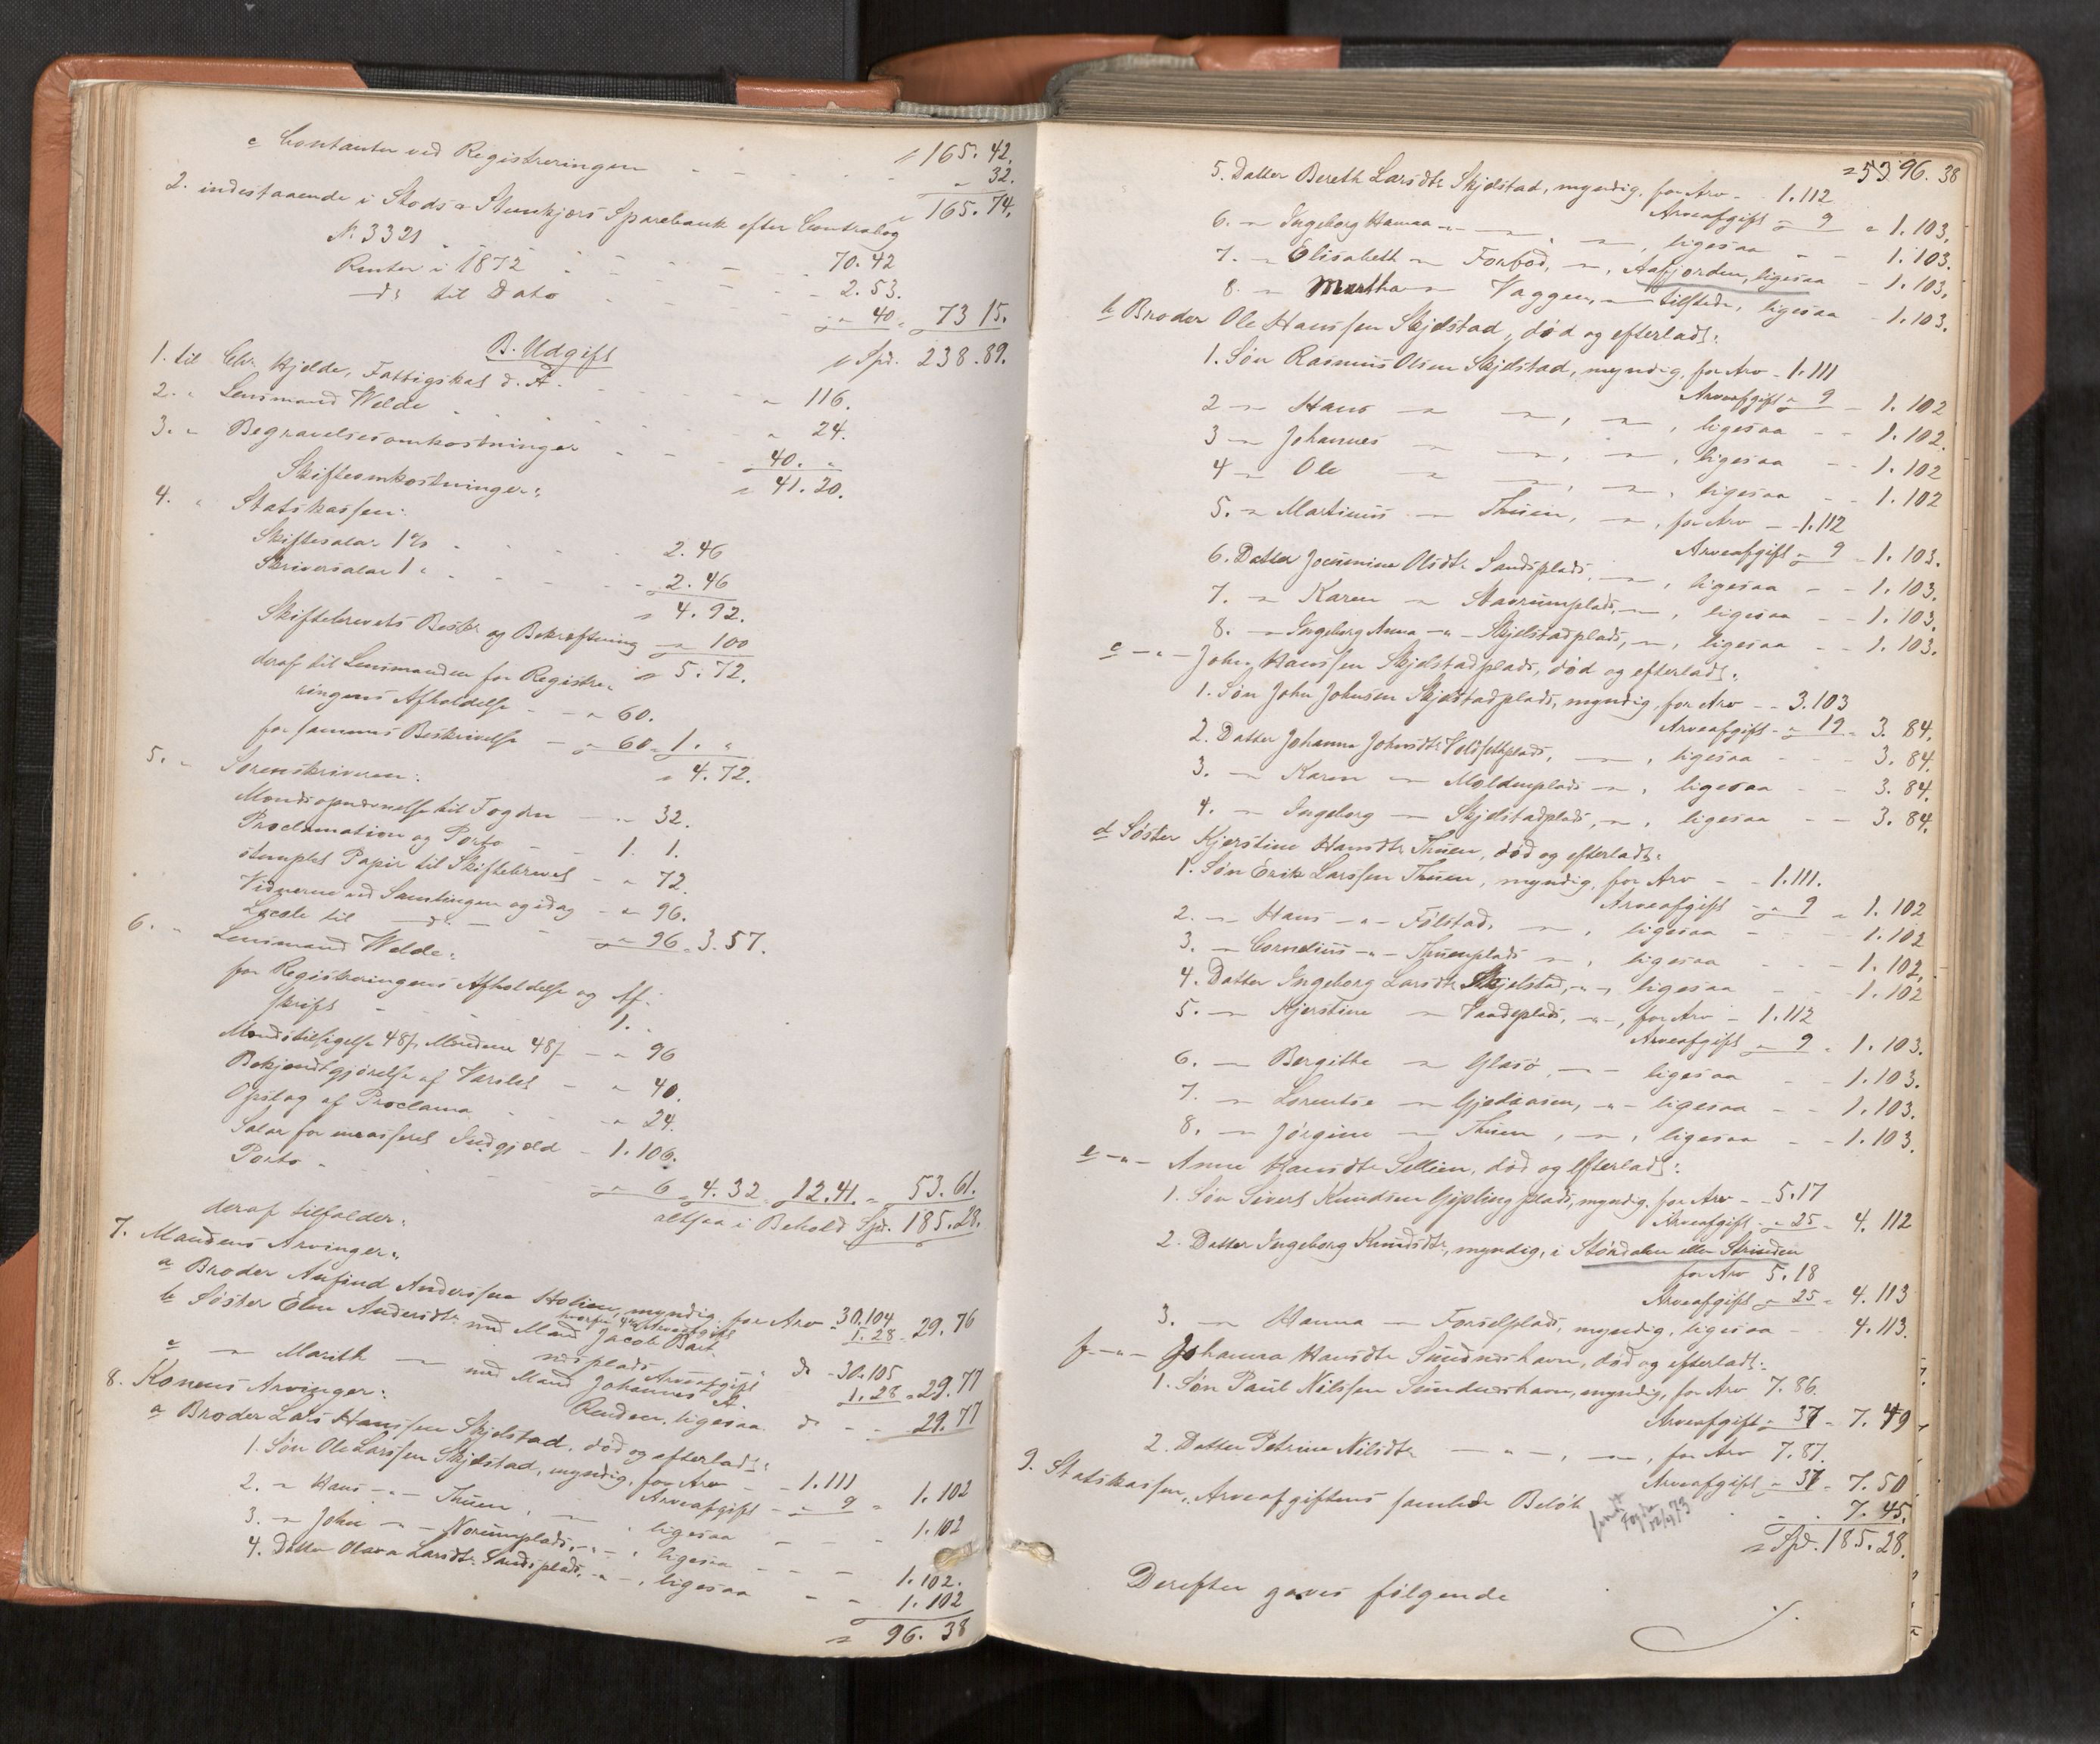 165. 42.
c Contanter ved Registreringen - - - - " 32.
" 165. 74.
2. indestaaende i Stods & Stenkjærs Sparebank efter Contrabog
No 3321 - - - 70. 42
Renter i 1872 - - - 2. 53.
- do til Dato - - - " 40 " 73 15.
Spd. 238. 89.
B. Udgift
1. til Chr. Hjelde, Fattigskat d. A. - - - " 116.
2. " Lensmand Welde - - - " 24.
3. " Begravelsesomkostninger - - - 40. "
" 41. 20.
Skifteomkostninger:
4. " Statskassen:
Skiftesalær 1% - - - 2. 46
Skriversalær 1 " - - - 2. 46
" 4. 92.
Skiftebrevets Beskr. og Bekræftning " 100
" 5. 72.
deraf til Lensmanden for Registre-
ringens Afholdelse - - " 60.
for sammes Beskrivelse - " 60 " 1. "
" 4. 72.
5. " Sorenskriveren:
til Fogden - " 32.
Proclamation og Porto - - 1. 1.
stemplet Papir til Skiftebrevet - " 72.
Vidnerne ved Samlingen og idag - " 96.
Locale til - do - - " 96 " 3. 57.
6. " Lensmand Welde:
for Registreringens Afholdelse og Af-
skrift - - - 1. "
48 s, 48 s - " 96
Bekjendtgjørelse af Varslet - " 40.
Opslag af Proclama - - " 24.
Salær for incasseret Indgjæld - 1. 106.
Porto - - - " 6 " 4. 32 " 12. 41. " 53. 61.
altsaa i Behold Spd. 185. 28.
deraf tilfalder:
7. Mandens Arvinger:
a Broder Anfind Anderssen Holien, myndig, for Arv - 30. 104
Arveafgift 1. 28 " 29. 76
b Søster Elen Andersdtr. med Mand Jacob
plads do - 30. 105
Arveafgift 1. 28 " 29. 77
c - " - Marith - " - med Mand Johannes
ligesaa do - - 29. 77
8. Konens Arvinger:
a Broder Lars Hanssen Skjelstad, død og efterladt:
1. Søn Ole Larssen Skjelstad, myndig, for Arv - - 1. 111
Arveafgift - " 9 " 1. 102
2. " Hans - " - Thuen, - " - ligesaa - - 1. 102
3. " John - " - Norumplads, - " - ligesaa - - 1. 102.
4. Datter Olava Larsdtr. Sandsplads, - " -, ligesaa - - 1. 102
" 96. 38
" 96. 38
5. Datter Bereth Larsdtr Skjelstad, myndig, for Arv - 1. 112
Arveafgift " 9 " 1. 103.
6. - " Ingeborg Hanna - " - - " -, - " -, ligesaa - - 1. 103.
7. - " Elisabeth - " - Forbod, - " -, Aafjorden, ligesaa - 1. 103.
8. - " Martha - " - Vaggen, - " - tilstede, ligesaa - 1. 103.
b Broder Ole Hanssen Skjelstad, død og efterladt:
1. Søn Rasmus Olsen Skjelstad, myndig, for Arv - 1. 111
Arveafgift " 9 - 1. 102
2 - " Hans - " - - " -, - " -, ligesaa - - 1. 102.
3 - " Johannes - " - - " -, - " -, ligesaa - - 1. 102
4 - " Ole - " - - " -, - " -, ligesaa - - 1. 102
5. - " Martinus - " - Thuen, - " -, for Arv - 1. 112
Arveafgift " 9 - 1. 103.
6. Datter Olsdtr Sandsplads, - " -, ligesaa - - 1. 103.
7. - " Karen - " - Stavrumplads, - " -, ligesaa - - 1. 103.
8. - " Ingeborg Anna - " - Skjelstadplads, - " -, ligesaa - - 1. 103.
c - " - John Hanssen Skjelstadplads, død og efterladt:
1. Søn John Johnsen Skjelstadplads, myndig, for Arv - - 3. 103
Arveafgift - " 19 " 3. 84.
2. Datter Johanna Johnsdtr Volsethplads, - " -, ligesaa - - 3. 84.
3. - " Karen - " - Moldenplads - " -, ligesaa - - 3. 84.
4. - " Ingeborg - " - Skjelstadplads, - " -, ligesaa - - 3. 84.
d Søster Kjerstine Hansdtr Thuen, død og efterladt:
1. Søn Erik Larssen Thuen, myndig, for Arv - - 1. 111.
Arveafgift - " 9 " 1. 102
2. - " Hans - " - Følstad, - " -, ligesaa - - 1. 102
3. - " Cornelius - " - Thuenplads - " -, ligesaa - - 1. 102,
4. Datter Ingeborg Larsdtr Skjelstad, - " -, ligesaa - - 1. 102
5. - " Kjerstine - " - Vaadeplads, - " -, for Arv - 1. 112
Arveafgift " 9 " 1. 103.
6. - " Bergitte - " - Glasø - " - ligesaa - - 1. 103.
7. - " Lorentse - " - Gjedaasen, - " - ligesaa - - 1. 103.
8. - " Jørgine - " - Thuen, - " -, ligesaa - - 1. 103.
e - " - Anne Hansdtr Sellien, død og efterladt:
1. Søn Sivert Knudsen Gipling plads, myndig, for Arv - 5. 17
Arveafgift - " 25 " 4. 112
2. Datter Ingeborg Knudsdtr, myndig, i Størdalen eller Strinden
for Arv 5. 18
Arveafgift " 25 " 4. 113
3. - " Hanna - " - Forselplads, myndig, ligesaa - 4. 113.
f - " - Johanna Hansdtr Sundneshavn, død og efterladt:
1. Søn Paul Nilssen Sundneshavn, myndig, for Arv 7. 86.
Arveafgift " 37 - 7. 49
2. Datter Petrine Nilsdtr - " -, - " -, for Arv 7. 87.
Arveafgift " 37 - 7. 50
9. Statskassen, Arveafgiftens samlede Beløb - - 7. 45.
sendt
Fogden
12/4 73
" Spd. 185. 28.
Derefter gaves følgende
./.